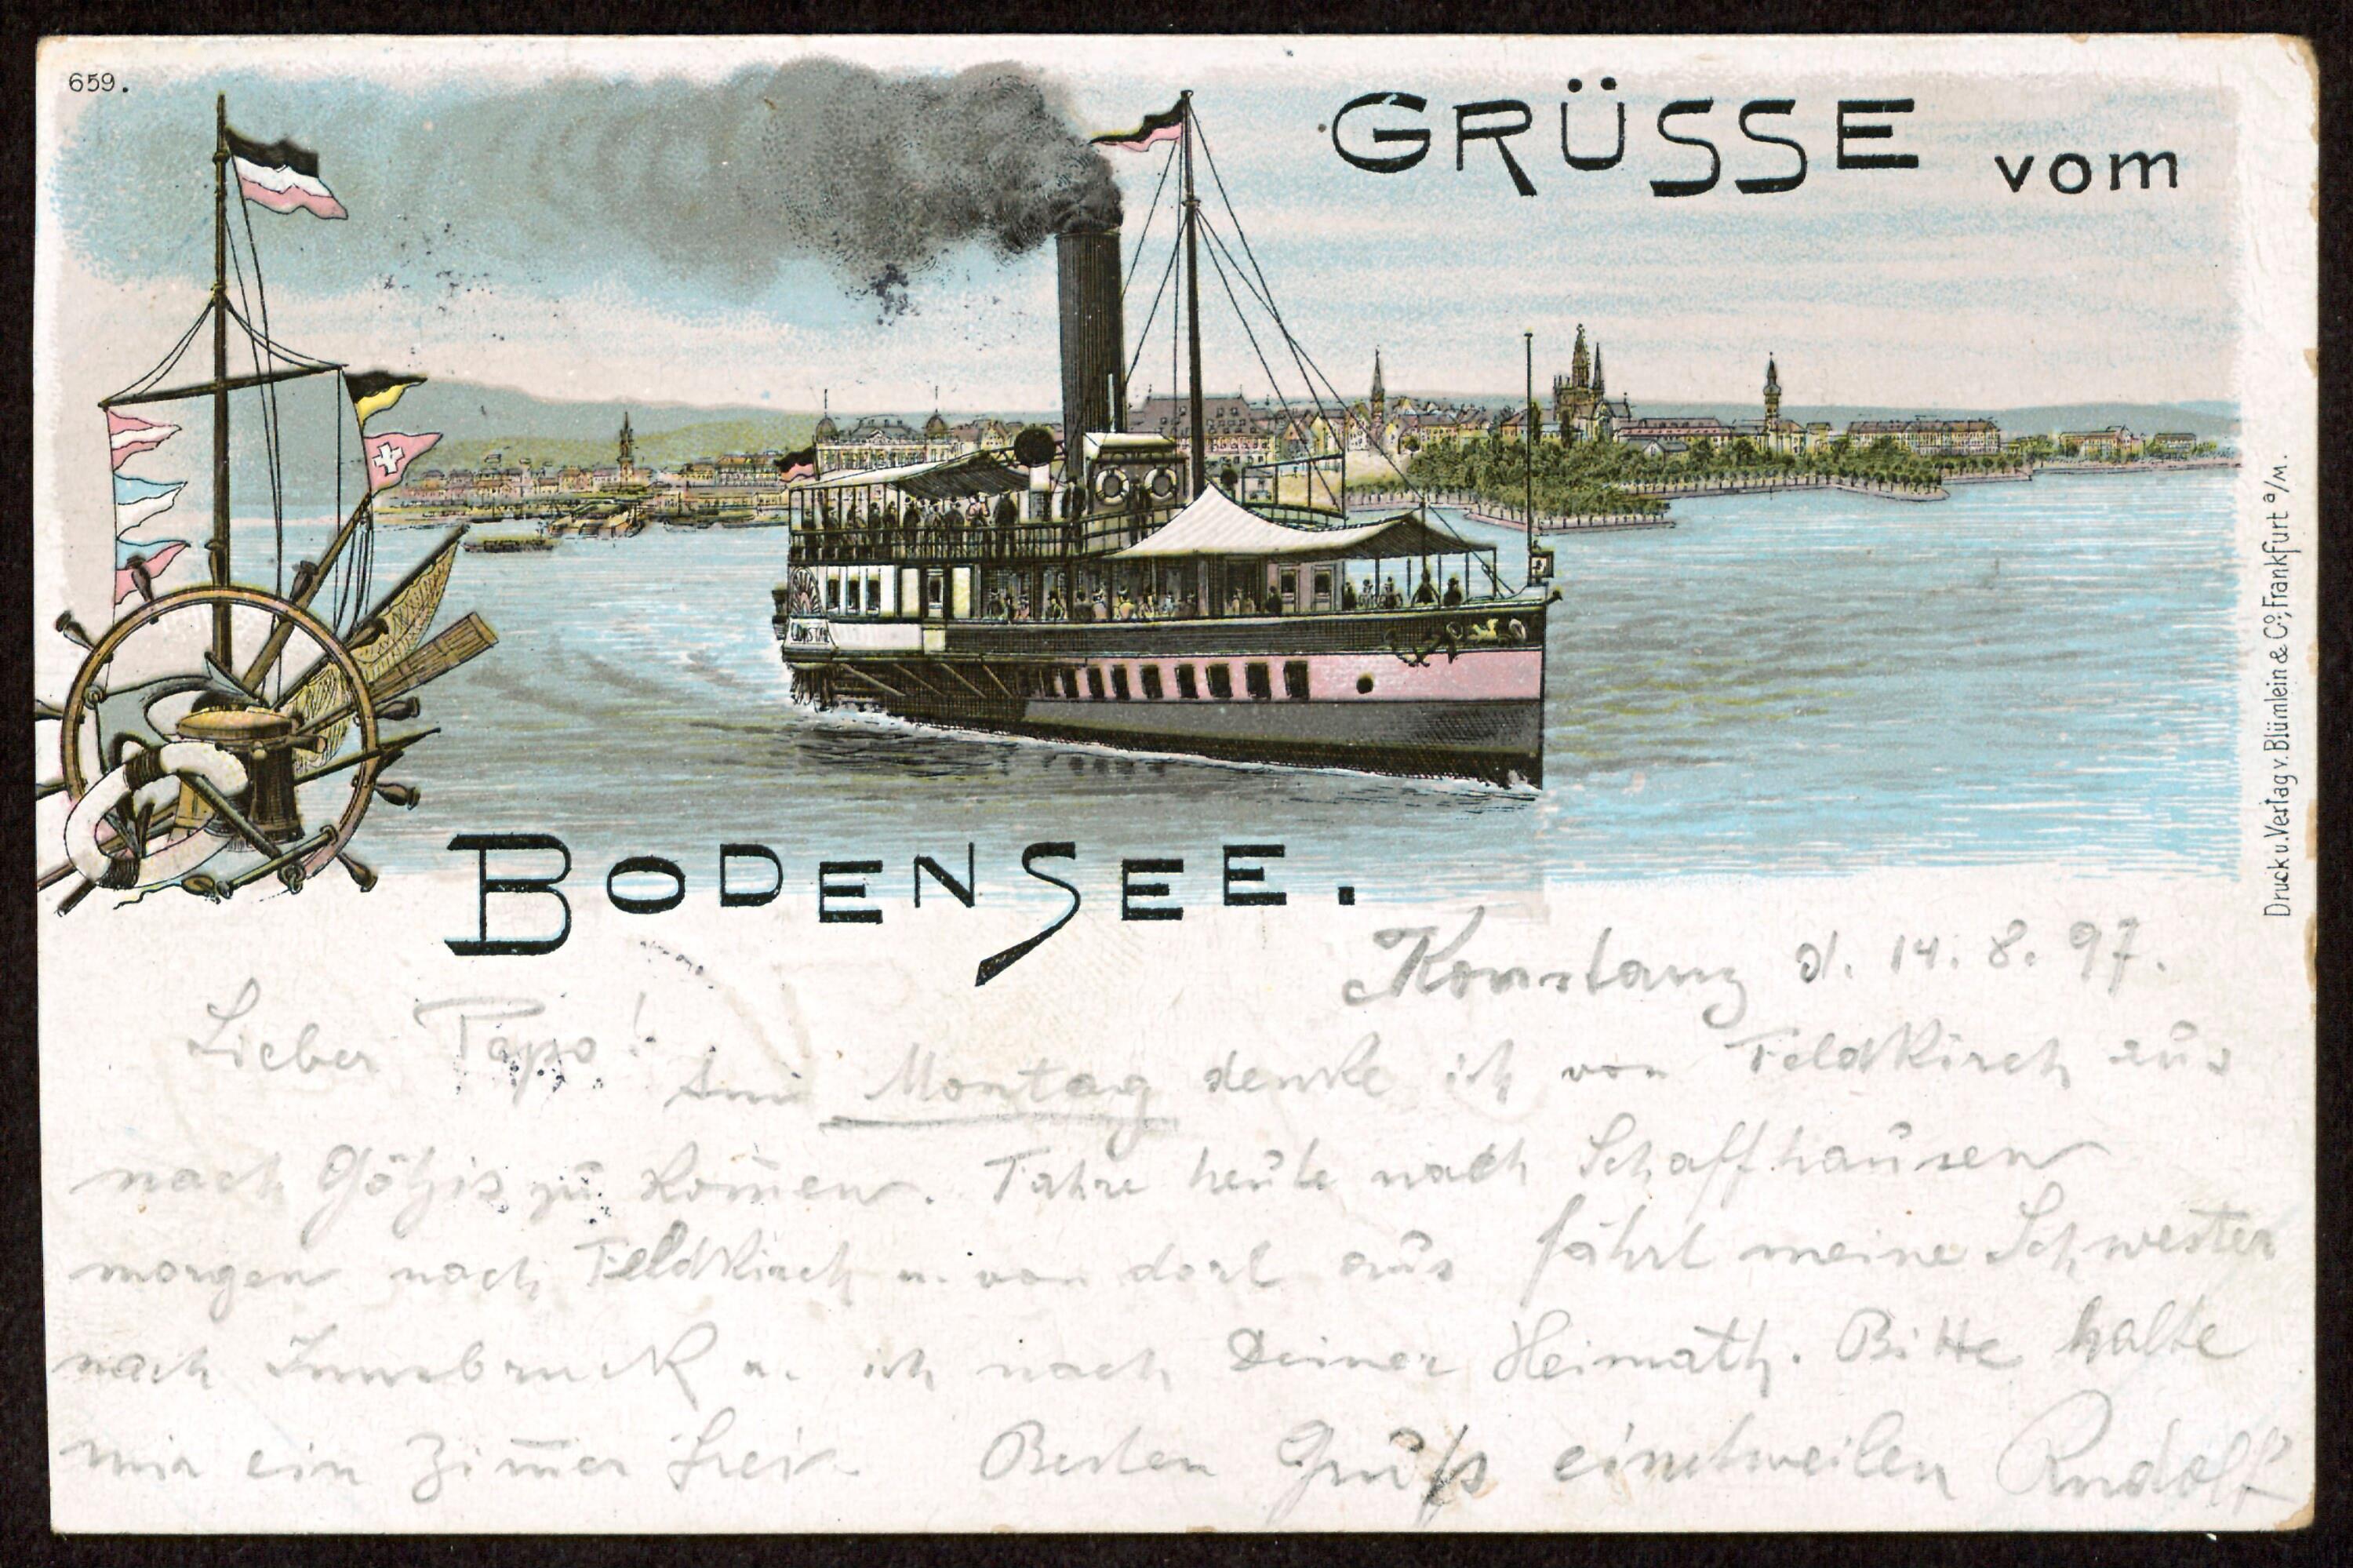 659.
GRÜSSE vom
BODENSEE.
Druck u. Verlag v. Blümlein & Co, Frankfurt a/M.
Konstanz d. 14. 8. 97.
Lieber Papa!
Am Montag denke ich von Feldkirch aus
nach Götzis zu kom̅en. Fahre heute nach Schaffhausen
morgen nach Feldkirch u. von dort aus fährt meine Schwester
nach Innsbruck u. ich nach Deiner Heimath. Bitte halte
mir ein Zim̅er frei. Besten Gruß einstweilen Rudolf